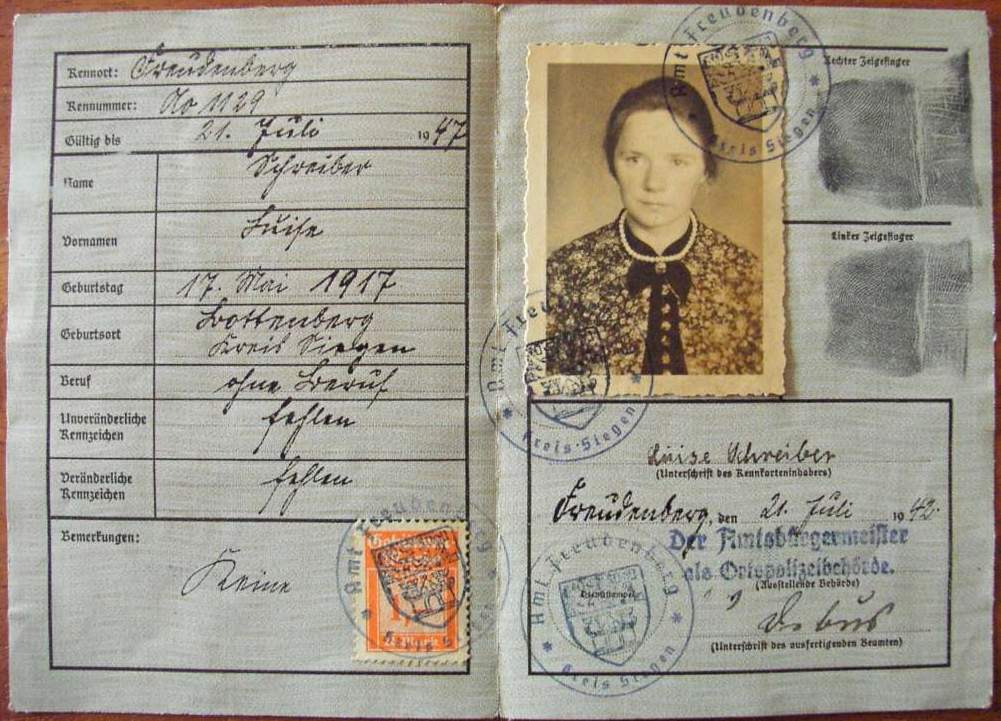 Kennort: Freudenberg
Kennummer: No 1129
Gültig bis 21. Juli 1947
Name Schreiber
Vornamen Luise
Geburtstag 17. Mai 1917
Geburtsort Bottenberg
Kreis Siegen
Beruf ohne Beruf
Unveränderliche Kennzeichen fehlen
Veränderliche Kennzeichen fehlen
Bemerkungen:
Keine
Amt Freudenberg
Kreis Siegen
Amt Freudenberg
Kreis Siegen
Rechter Zeigefinger
Linker Zeigefinger
Amt Freudenberg
Kreis Siegen
Luise Schreiber
(Unterschrift des Kennkarteninhabers)
Freudenberg, den 21. Juli 1942.
Der Amtsbürgermeister
als Ortspolizeibehörde.
(Ausstellende Behörde)
Dienststempel
Amt Freudenberg
Kreis Siegen
Debus
(Unterschrift des ausfertigenden Beamten)